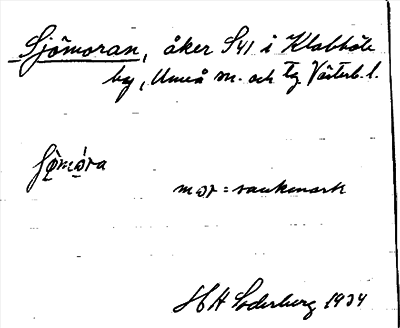 Sjömoran, åker S41 i Klabböle
by, Umeå sn. och tg Västerb. l.
sjö̀mǿra
mor = sankmark
HH Söderberg 1934